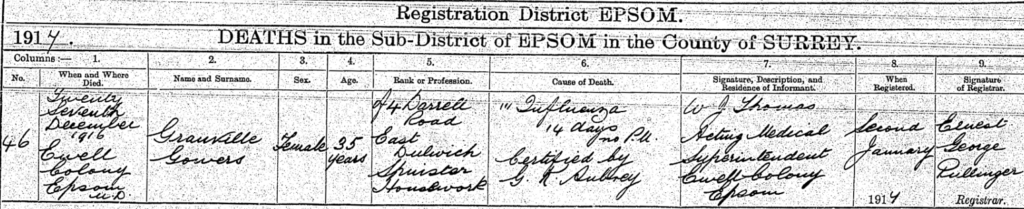 Registration District EPSOM.
1917. DEATHS in the Sub-District of EPSOM in the County of SURREY.
Columns:— 1. 2. 3. 4. 5. 6. 7. 8. 9.
No. When and Where Died. Name and Surname. Sex. Age. Rank or Profession. Cause of Death. Signature, Description, and Residence of Informant. When Registered. Signature of Registrar.
46
Twenty
Seventh
December
1916
Ewell
Colony
Epsom
U.D.
Granville
Gowers
Female
35
years
Darrell
Road
East
Dulwich
Spinster
Housework
Influenza
14 days
no P.M.
Certified by
G. R. Aubrey
W J Thomas
Acting Medical
Superintendent
Ewell Colony
Epsom
Second
January
1917
Ernest
George
Pullinger
Registrar.